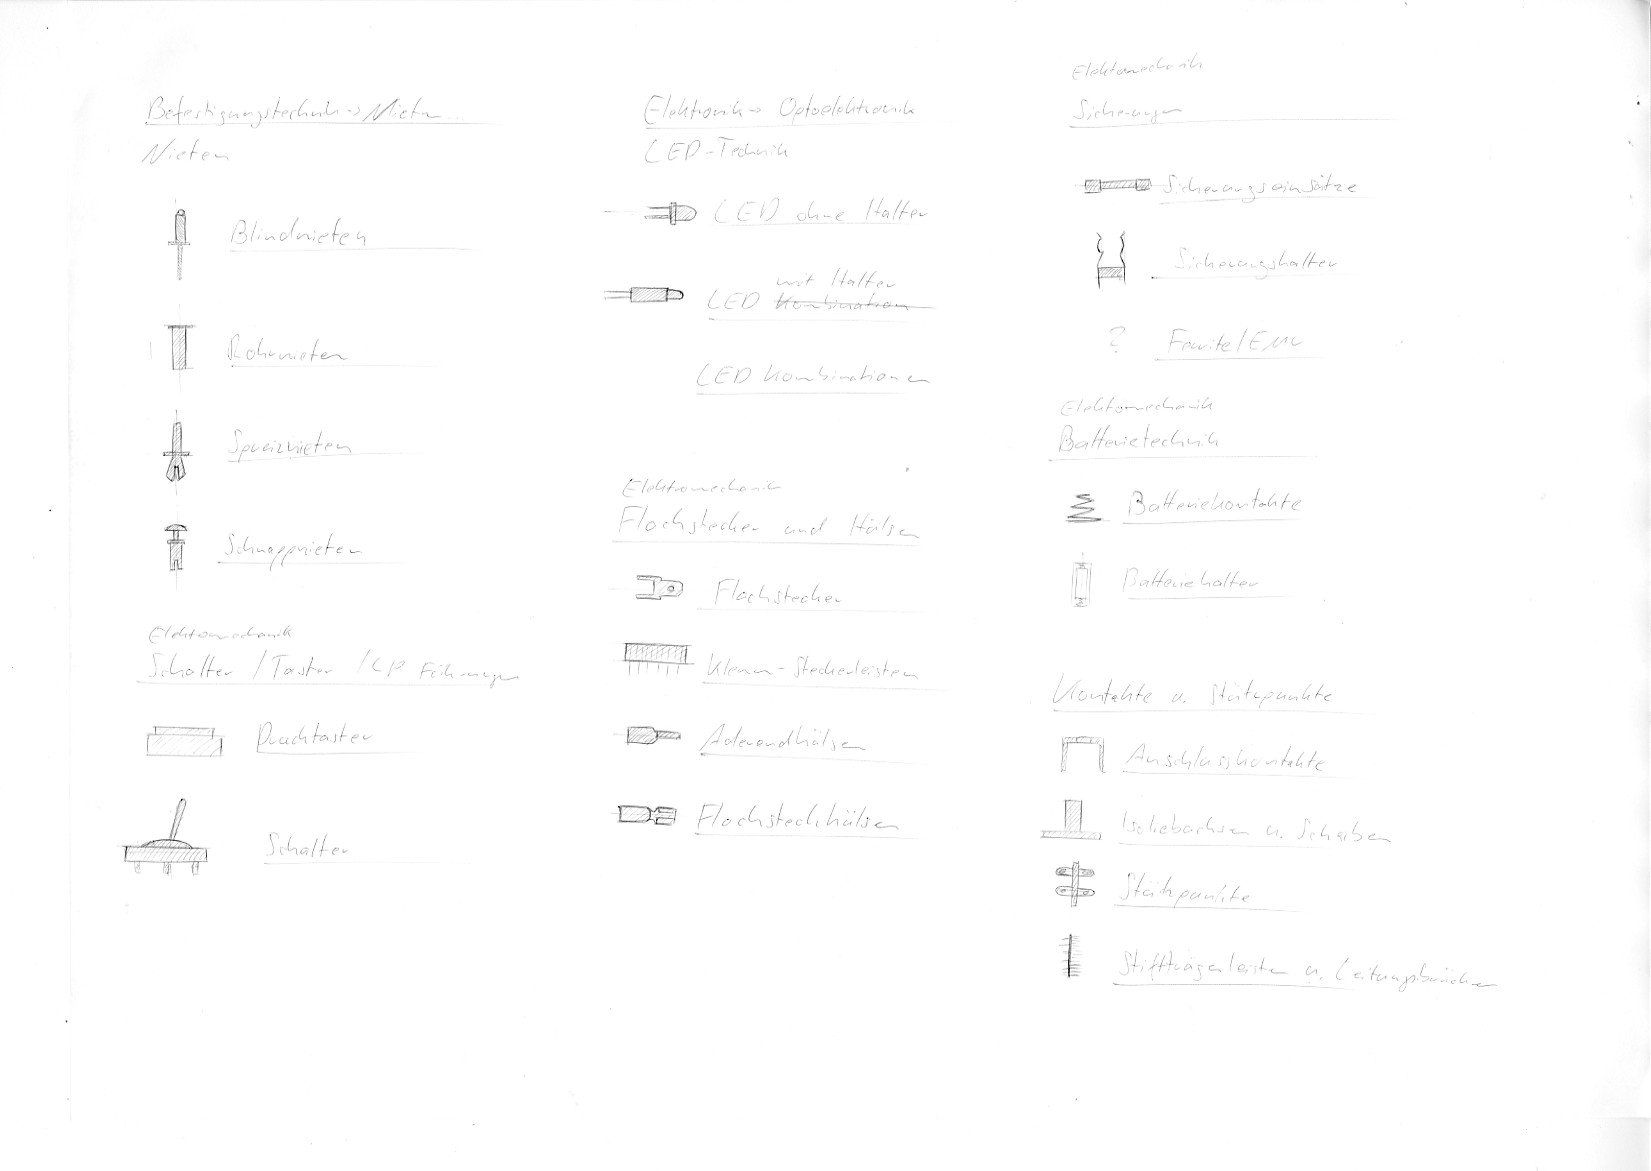 Befestigungstechnik -> Nieten...
Nieten
Blindnieten
Rohrnieten
Spreiznieten
Schnappnieten
Elektromechanik
Schalter / Taster / LP Führungen
Drucktaster
Schalter
Elektronik -> Optoelektronik
LED-Technik
LED ohne Halter
mit Halter
LED Kombination
LED Kombinationen
Elektromechanik
Flachstecker und Hülsen
Flachstecker
Klemm-Steckerleisten
Aderendhülsen
Flachsteckhülsen
Elektromechanik
Sicherungen
Sicherungseinsätze
Sicherungshalter
? Ferrite/EMV
Elektromechanik
Batterietechnik
Batteriekontakte
Batteriehalter
Kontakte u. Stützpunkte
Anschlusskontakte
u. Scheiben
Stützpunkte
Stiftträgerleisten u. Leitungsbrücken